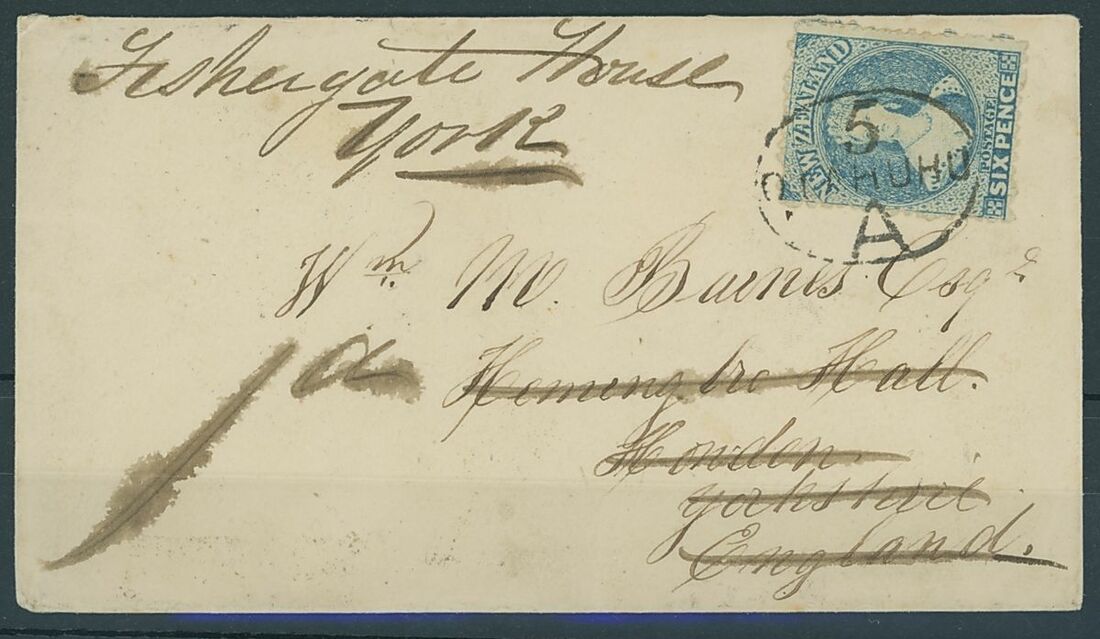 Fishergate House
York
NEW ZEALAND
POSTAGE
SIX PENCE
5
A
Wm. M. Barnes Esqr
Hemingbro Hall.
Howden.
Yorkshire
England.